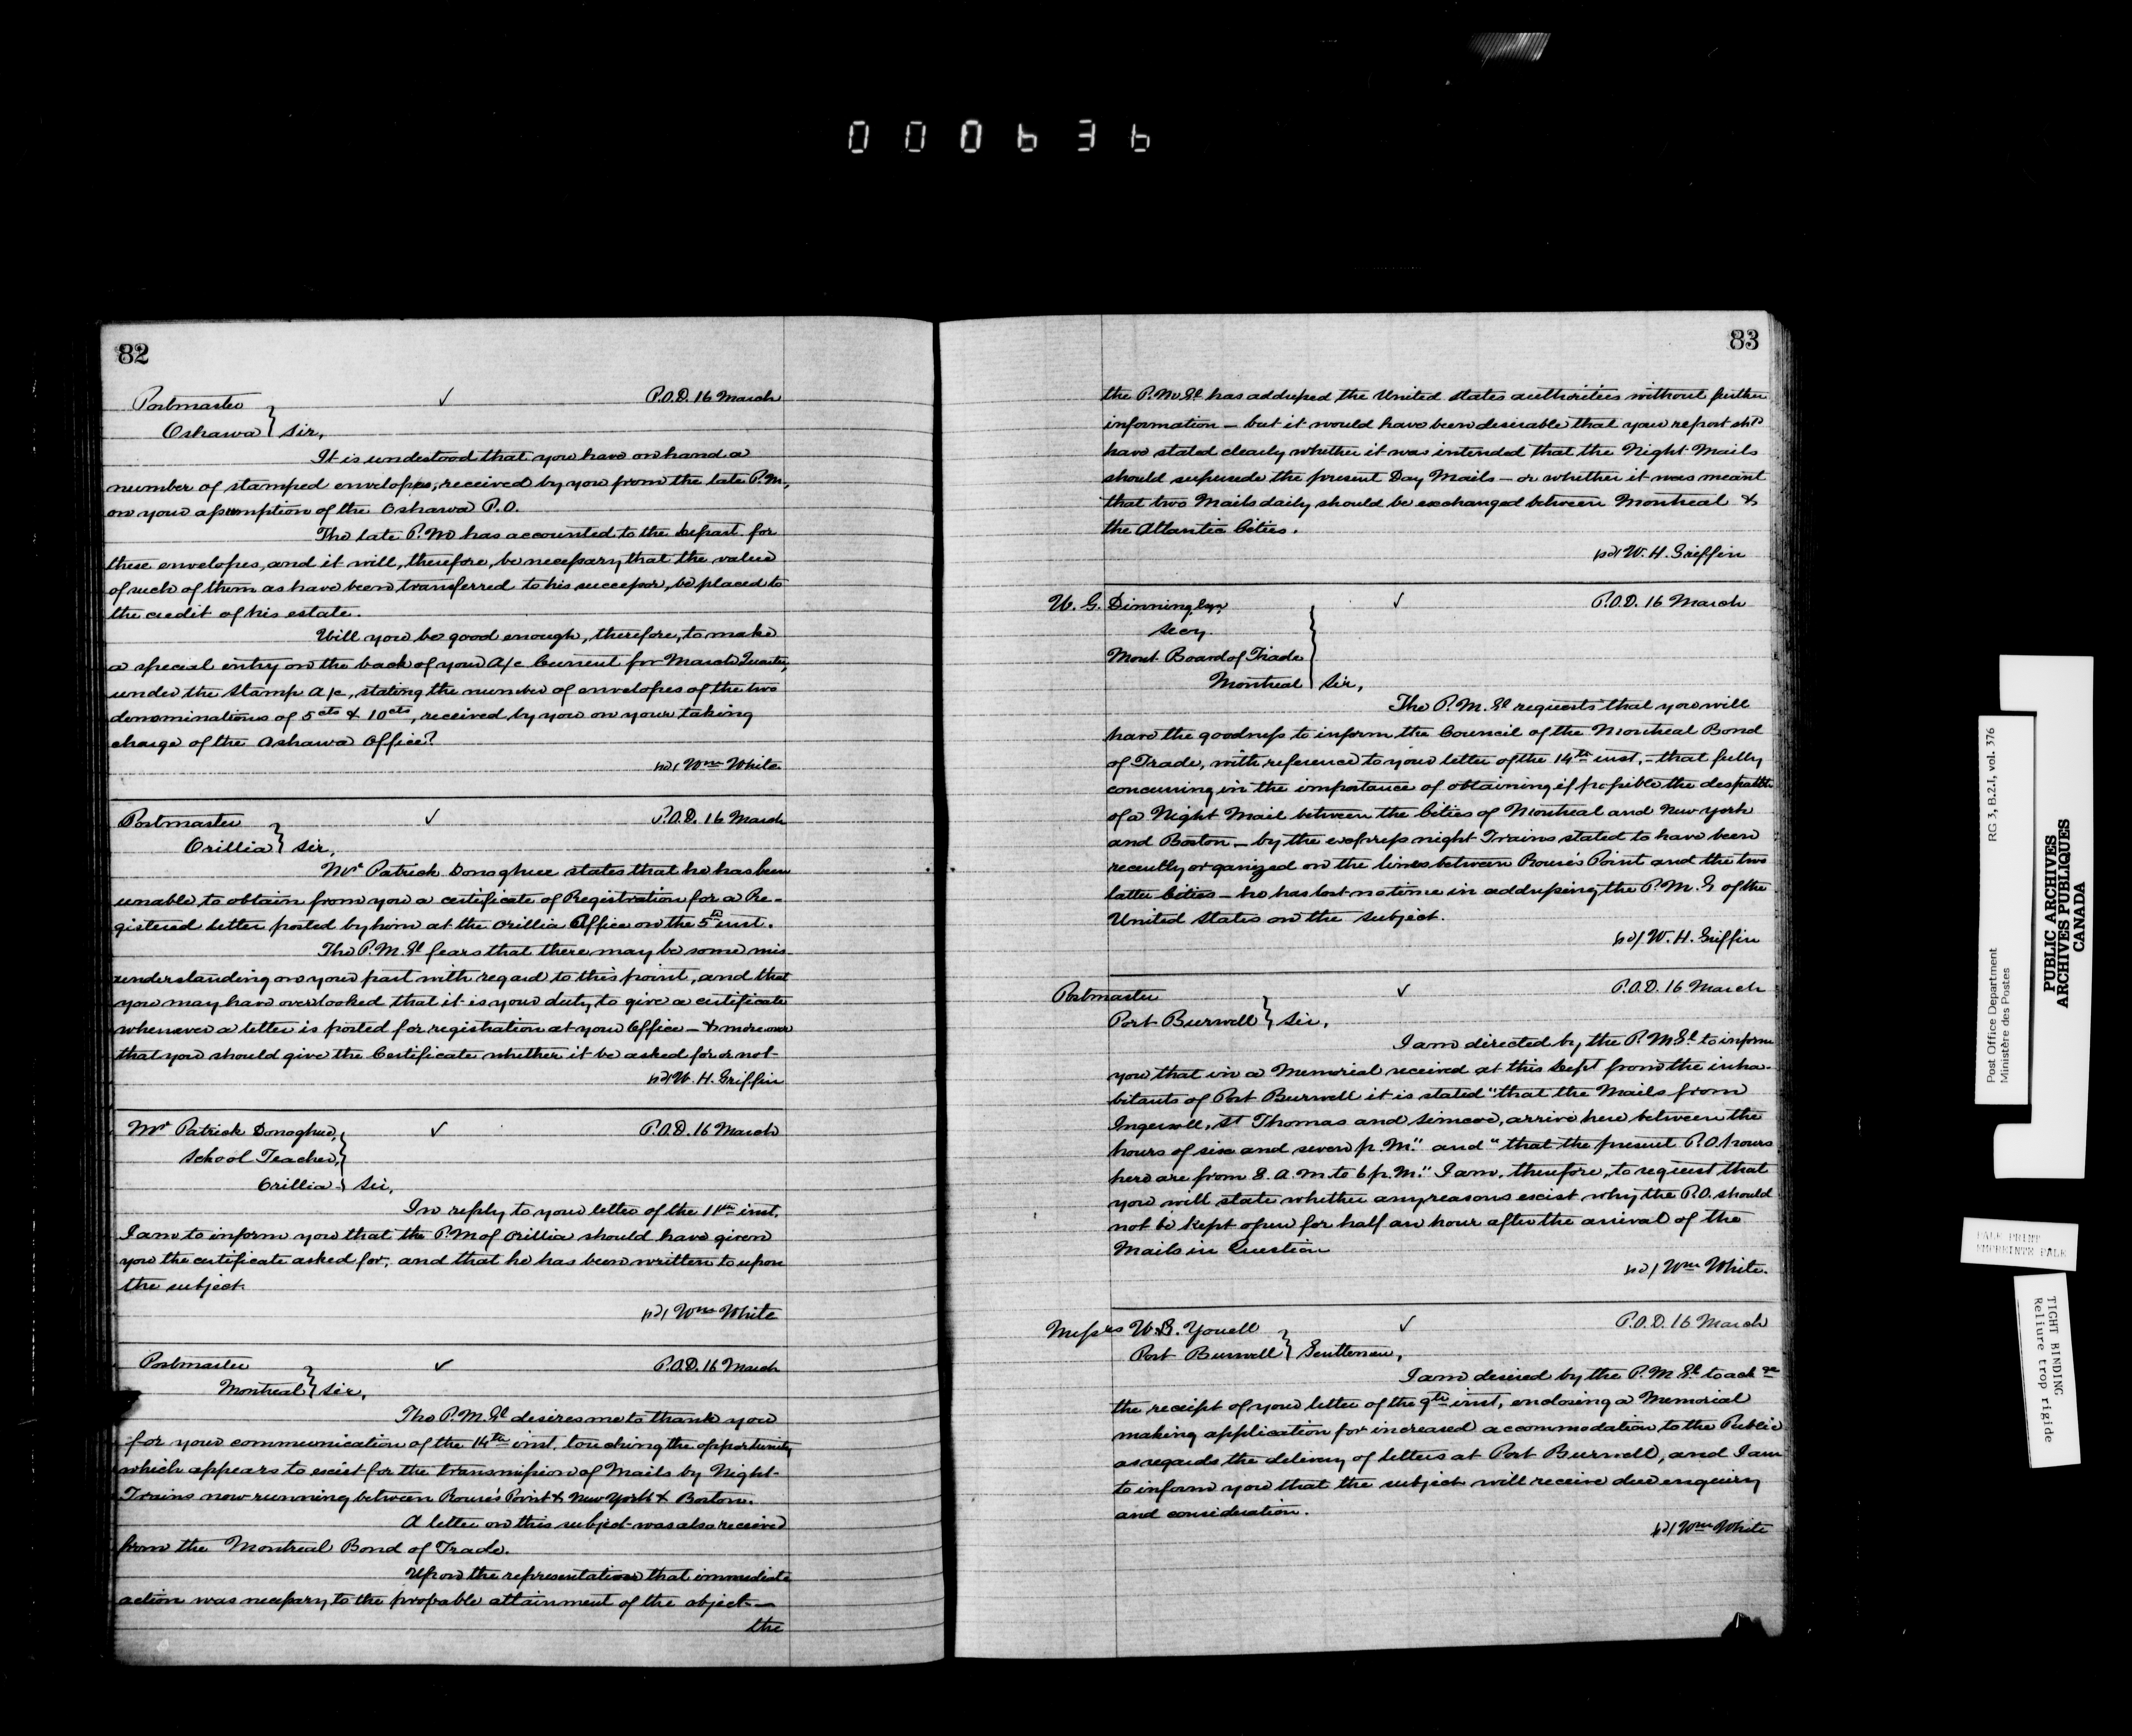 000636
82
Postmaster ✓ P.O.D. 16 March
Oshawa } Sir,
It is understood that you have on hand a
number of stamped envelopes, received by you from the late P.M,
on your assumption of the Oshawa P.O.
The late P.M has accounted to the Depart. for
these envelopes, and it will, therefore, be necessary that the value
of such of them as have been transferred to his successor, be placed to
the credit of his estate.
Will you be good enough, therefore, to make
a special entry on the back of your A/c Current for March Quarter,
under the Stamp A/c, stating the number of envelopes of the two
denominations of 5cts & 10cts, received by you on your taking
charge of the Oshawa Office?
sd/ Wm White
Postmaster ✓ P.O.D. 16 March
Orillia } Sir,
Mr Patrick Donoghue states that he has been
unable to obtain from you a certificate of Registration for a Re-
gistered letter posted by him at the Orillia Office on the 5th inst.
The P.M.Gl fears that there may be some mis-
understanding on your part with regard to this point, and that
you may have overlooked that it is your duty to give a certificate
whenever a letter is posted for registration at your Office – & moreover
that you should give the Certificate whether it be asked for or not-
sd/ W. H. Griffin
Mr Patrick Donoghue, ✓ P.O.D. 16 March
School Teacher,
Orillia } Sir,
In reply to your letter of the 11th inst.
I am to inform you that the P.M of Orillia should have given
you the certificate asked for, and that he has been written to upon
the subject.
sd/ Wm White
Postmaster ✓ P.O.D. 16 March
Montreal } Sir,
The P.M.Gl desires me to thank you
for your communication of the 14th inst. touching the opportunity
which appears to exist for the transmission of Mails by Night-
Trains now running between Rouse's Point & New York & Boston.
A letter on this subject was also received
from the Montreal Bond of Trade.
Upon the representation that immediate
action was necessary to the probable attainment of the object –
the
83
the P.M.Gl has addressed the United States authorities without further
information – but it would have been desirable that your report shd
have stated clearly whether it was intended that the Night Mails
should supersede the present Day Mails – or whether it was meant
that two Mails daily should be exchanged between Montreal &
the Atlantic Cities.
sd/ W. H. Griffin
W. G. Dinning, Esqr ✓ P.O.D. 16 March
Secy.
Mont. Board of Trade
Montreal } Sir,
The P.M.Gl requests that you will
have the goodness to inform the Council of the Montreal Bond
of Trade, with reference to your letter of the 14th inst, – that fully
concurring in the importance of obtaining if possible the despatch
of a Night Mail between the Cities of Montreal and New York
and Boston – by the express night Trains stated to have been
recently organized on the lines between Rouse's Point and the two
latter Cities – he has lost no time in addressing the P.M.G of the
United States on the subject.
sd/ W. H. Griffin
Postmaster ✓ P.O.D. 16 March
Port Burwell } Sir,
I am directed by the P.M.Gl to inform
you that in a Memorial received at this Dept from the inha-
bitants of Port Burwell it is stated "that the Mails from
Ingersoll, St Thomas and Simcoe, arrive here between the
hours of six and seven p.M." and "that the present P.O. hours
here are from 8. A.M. to 6 p.M." I am, therefore, to request that
you will state whether any reasons exist why the P.O. should
not be kept open for half an hour after the arrival of the
Mails in Question
sd/ Wm White.
Messrs W.G. Youell ✓ P.O.D. 16 March
Port Burwell } Gentlemen,
I am desired by the P.M.Gl to ackge
the receipt of your letter of the 9th inst, enclosing a Memorial
making application for increased accommodation to the Public
as regards the delivery of letters at Port Burwell, and I am
to inform you that the subject will receive due enquiry
and consideration.
sd/ Wm White
Post Office Department
Ministère des Postes
RG 3, B.2.1, vol. 376
PUBLIC ARCHIVES
ARCHIVES PUBLIQUES
CANADA
PALE PRINT
EMPREINTE PALE
TIGHT BINDING
Reliure trop rigide